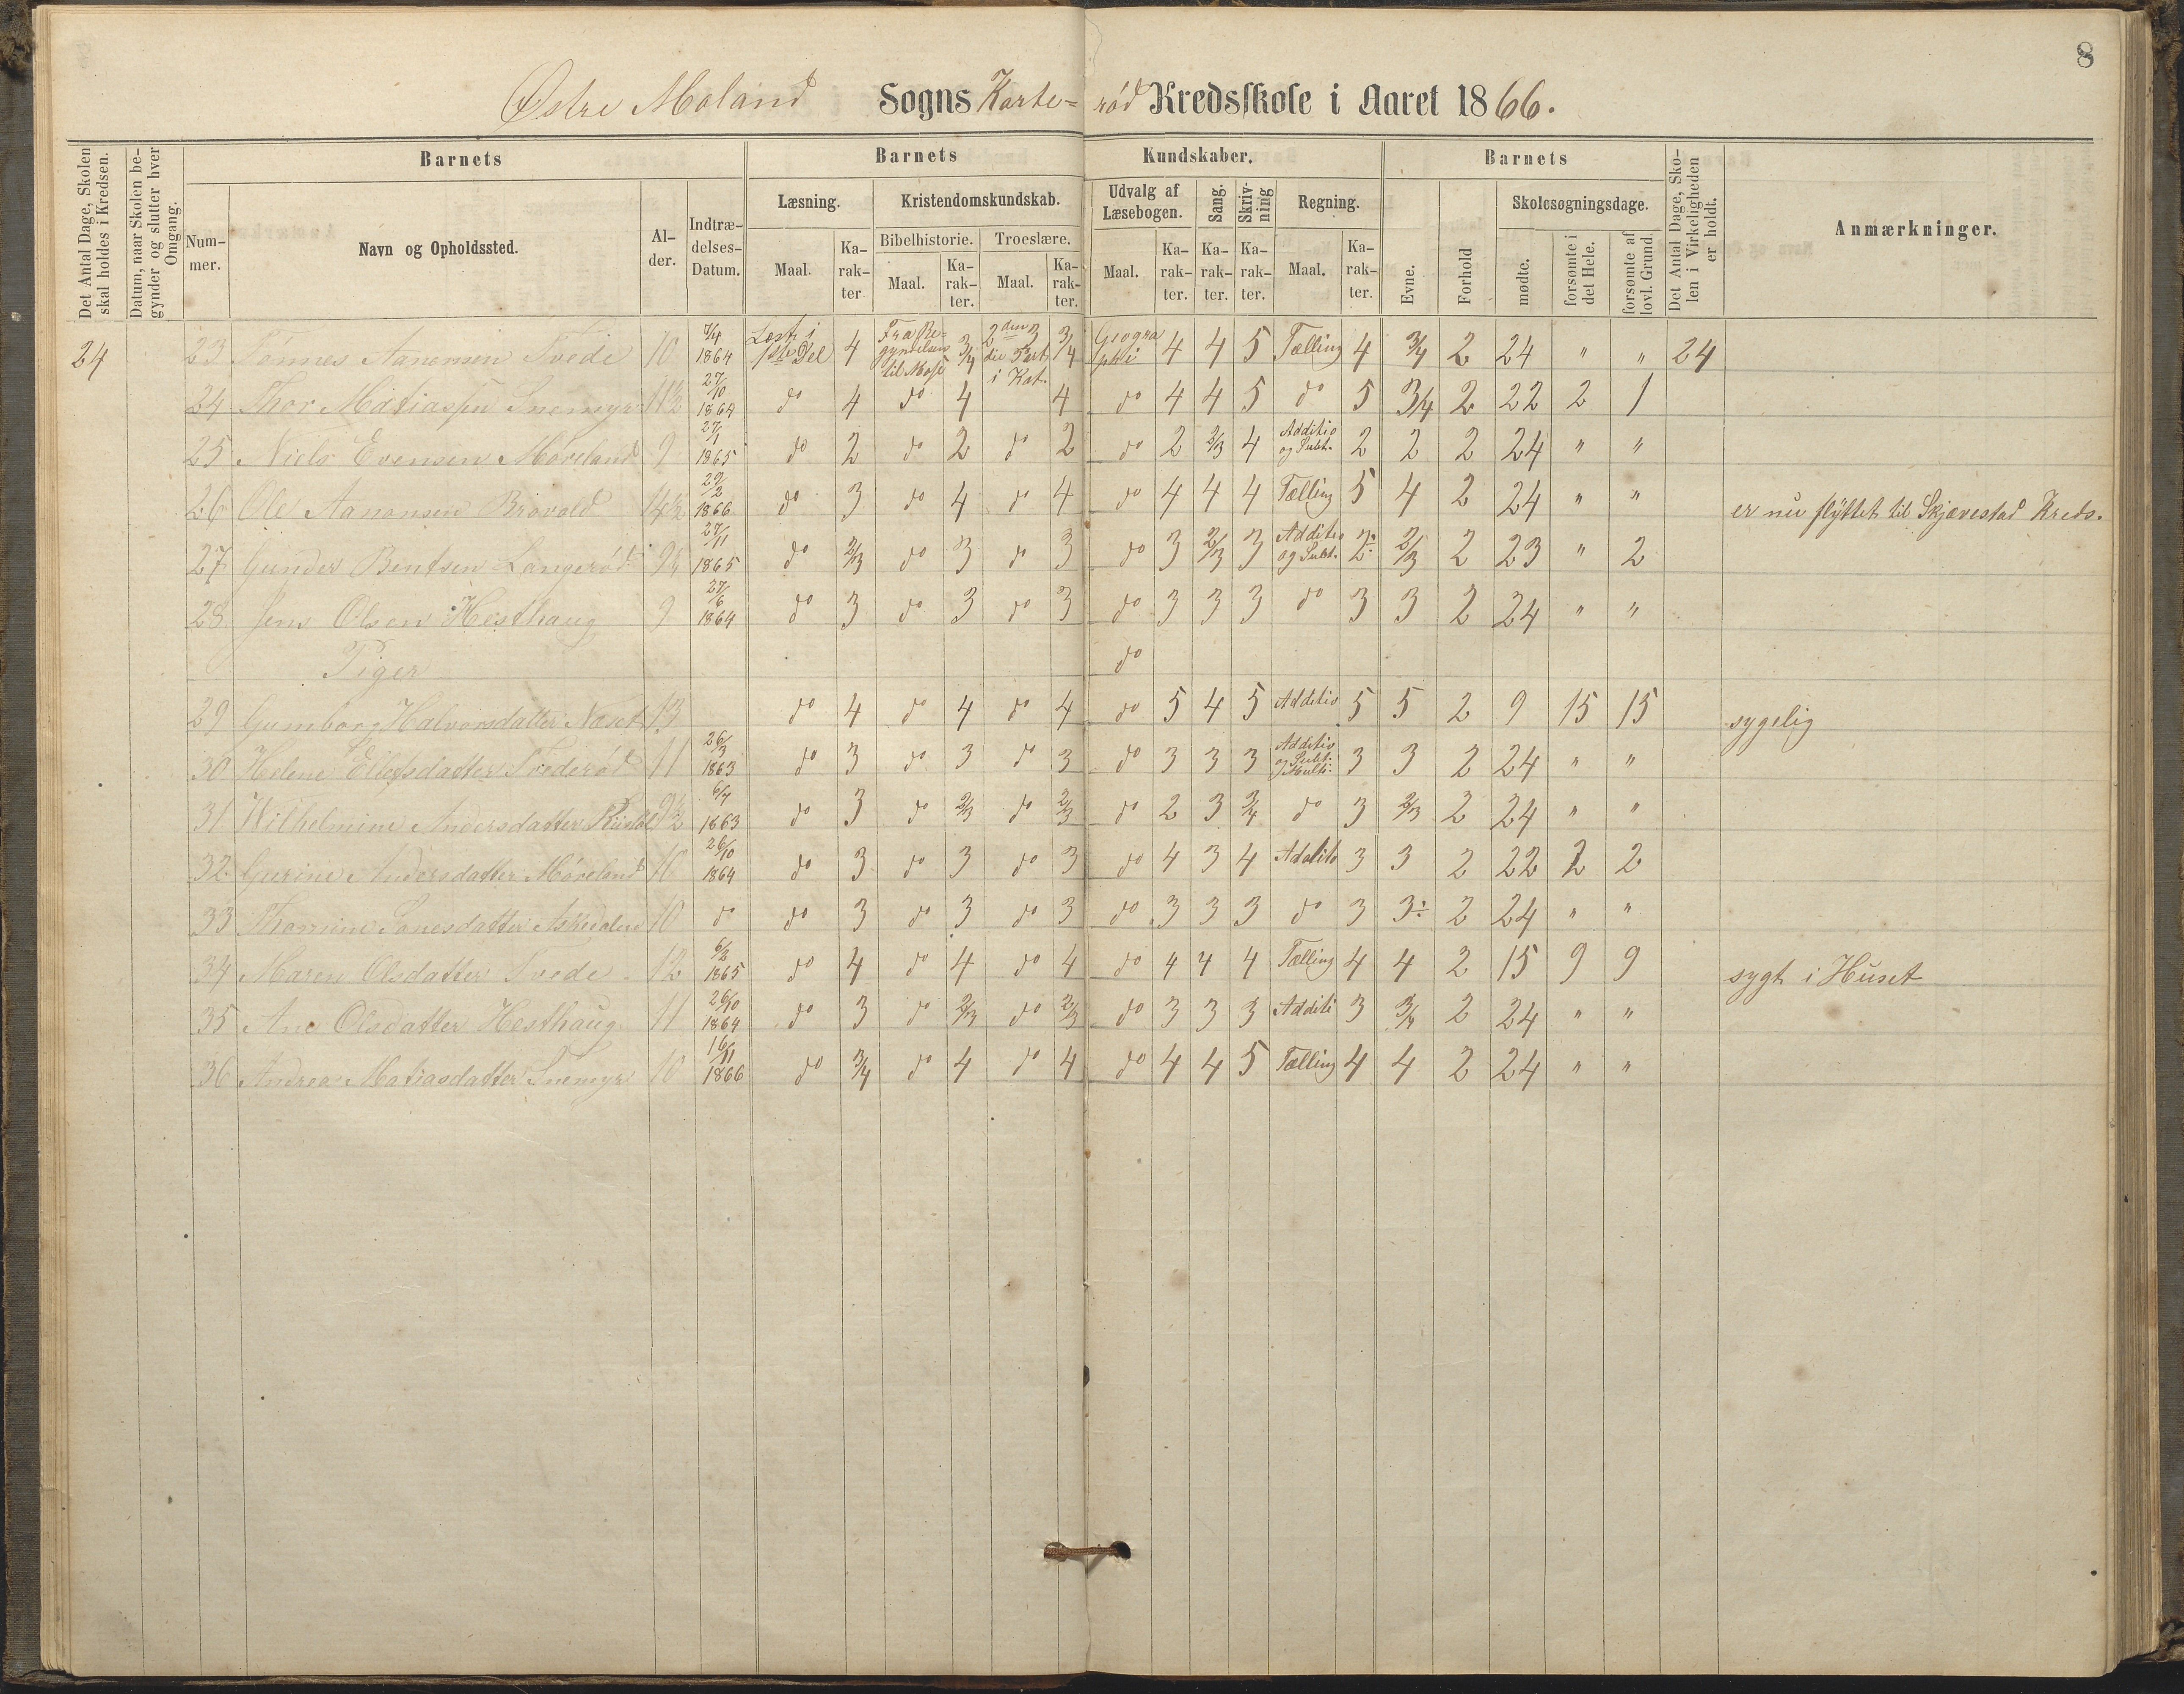 8
Østre Moland Sogns Karte- rød Kredsskole i Aaret 1866.
Det Antal Dage, Skolen skal holdes i Kredsen.
Datum, naar Skolen begynder og slutter hver Omgang.
Barnets
Nummer.
Navn og Opholdssted.
Alder.
Indtrædelses-Datum.
Barnets Kundskaber.
Læsning. Maal. Karakter
Kristendomskundskab.
Bibelhistorie. Maal. Karakter.
Troeslære. Maal. Karakter.
Udvalg af Læsebogen. Maal. Karakter.
Sang. Karakter.
Skrivning Karakter.
Regning. Maal. Karakter.
Barnets
Evne. Forhold
Skolesøgningsdage.
mødte. forsømte i det Hele. forsømte af lovl. Grund.
Det Antal Dage, Skolen i Virkeligheden er holdt.
Anmærkninger.
24 23 Tønnes Aanonsen Tvede 10 7/4 1864 Læst i 1ste Del 4 Fra Begyndelsen til Mose 3/4 2den 3die Part i Kat. 3/4 Geographi 4 4 5 Tælling 4 3/4 2 24 " " 24
24 Thor Matiassen Snemyr 11½ 27/10 1864 do 4 do 4 4 do 4 4 5 do 5 3/4 2 22 2 1
25 Niels Evensen Møreland 9 27/1 1865 do 2 do 2 do 2 do 2 2/3 4 Additio og Subt. 2 2 2 24 " "
26 Ole Aanonsen Brovold 14½ 22/2 1866 do 3 do 4 do 4 do 4 4 4 Tælling 5 4 2 24 " " er nu flyttet til Skjævestad Kreds.
27 Gunder Bentsen Langerød 9¼ 27/11 1865 do 2/3 do 3 do 3 do 3 2/3 3 Additio og Subt. 2 2/3 2 23 " 2
28 Jens Olsen Hesthaug 9 27/6 1864 do 3 do 3 do 3 do 3 3 3 do 3 3 2 24 " "
Piger do
29 Gumborg Halvorsdatter Næset 13 do 4 do 4 do 4 do 5 4 5 Additio 5 5 2 9 15 15 sygelig
30 Helene Ellefsdatter Trederød 11 26/3 1863 do 3 do 3 do 3 do 3 3 3 Additio og Subt. Multi: 3 3 2 24 " "
31 Wilhelmine Andersdatter 9½ 6/4 1863 do 3 do 2/3 do 2/3 do 2 3 3/4 do 3 2/3 2 24 " "
32 Gurine Andersdatter Møreland 10 26/10 1864 do 3 do 3 do 3 do 4 3 4 Additio 3 3 2 22 2 2
33 Thomine Tonesdatter 10 do do 3 do 3 do 3 do 3 3 3 do 3 3÷ 2 24 " "
34 Maren Olsdatter Tvede 12 6/2 1865 do 4 do 4 do 4 do 4 4 4 Tælling 4 4 2 15 9 9 sygt i Huset
35 Ane Olsdatter Hesthaug 11 26/10 1864 do 3 do 2/3 do 2/3 do 3 3 3 Additi 3 3/4 2 24 " "
36 Andrea Matiasdatter Snemyr 10 16/11 1866 do 3/4 do 4 do 4 do 4 4 5 Tælling 4 4 2 24 " "